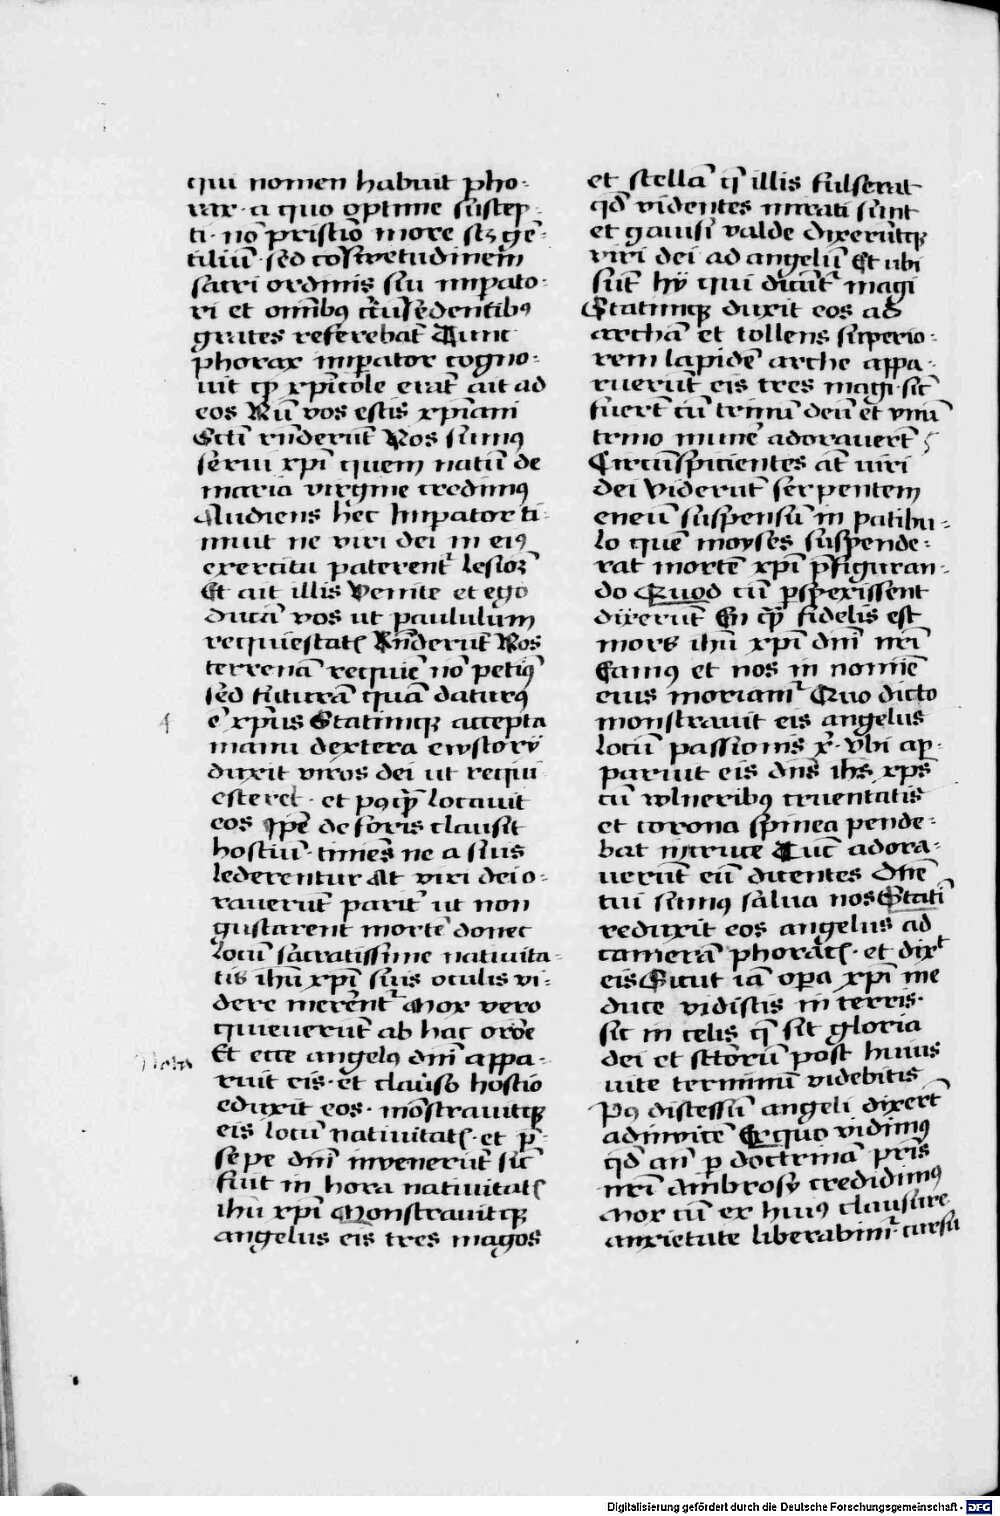 qui nomen habuit pho-
rax · a quo optime suscep-
ti · nō pristīo more scꝫ gē-
tiliū · sed cōswetudinem̄
sacri ordinis siu impato-
ri et om̄ibꝰ
grates referebāt Tunc
phorax imp̄ator cogno-
uit qp̄ xp̄icole erāt ait ad
eos Nū vos estis xp̄iani
Sc̄ti rn̄derūt Nos sumꝰ
serui xp̄i quem natū de
maria virgine credimꝰ
Audiens hec Imperator ti-
muit ne viri dei in eiꝰ
exercitu paterent᷑ lesioꝫ
Et ait illis Venite et ego
ducā vos ut paululum
requiestatꝭ Rn̄derūt Nos
terrenā requiē nō petimꝰ
sed futurā quā daturꝰ
ē xp̄us Statimqꝫ accepta
manu dextera
duxit viros dei ut requi
esterēt · et pꝰqꝫ̄ locauit
eos Ip̄e de foris clausit
hostiū · timēs ne a suis
lederentur At viri dei o-
rauerūt parit᷑ ut non
gustarent mortē donec
Locū sacratissime natiuita-
tis ih̄u xp̄i suis oculis vi-
dere merēnt᷑ Mox vero
quieuerūt ab hac orōe
Nota
Et ecce angelꝰ dn̄i appa-
ruit eis · et clauso hostio
eduxit eos · mōstrauitqꝫ
eis locū natiuitatꝭ · et p̄-
sepe dn̄i inuenerūt sic̄
fuit in hora natiuitatꝭ
ih̄u xp̄i Monstrauitqꝫ
angelus eis tres magos
et stellā q̄ illis fulserat
qd̄ videntes mirati sunt
et gauisi valde dixerūtqꝫ
viri dei ad angelū Et ubi
sūt hij qui dicūt᷑ magi
Statimqꝫ duxit eos ad
archā et tollens superio-
rem lapidē arche appa-
ruerūt eis tres magi · sic̄
fuert̄ cū trinū deū et vnū
trino munē adorauert̄
Circūspicientes āt viri
dei viderūt serpentem
eneū suspensū in patibu-
lo quē moyses suspende-
rat mortē xp̄i p̄figuran-
do Quod cū ꝑspexissent
dixerūt En qꝫ̄ fidelis est
mors ih̄u xp̄i dn̄i nr̄i
Eamꝰ et nos in nomīe
eius moriam᷑ Quo dicto
monstrauit eis angelus
locū passionis x̄ · vbi ap-
paruit eis dn̄s ih̄s xp̄s
cū wlneribꝰ cruentatis
et corona spinea pende-
bat in cruce Tūc adora-
uerūt eū dicentes Dn̄e
tui sumꝰ salua nos Stati
reduxit eos angelus ad
camerā phoracꝭ · et dixt
eis Sicut iā oꝑa xp̄i me
duce vidistis in terris ·
sic in celis q̄ sit gloria
dei et sc̄torū post huius
uite terminū videbitis
Pꝰ discessū angeli dixert̄
adinuicē Ex quo vidimꝰ
qd̄ an̄ ꝑ doctrinā pr̄is
nr̄i Ambrosij credidimꝰ
Mox cū ex huiꝰ clausure
anxietate liberabim᷑ · cursu
Digitalisierung gefördert durch die Deutsche Forschungsgemeinschaft · DFG